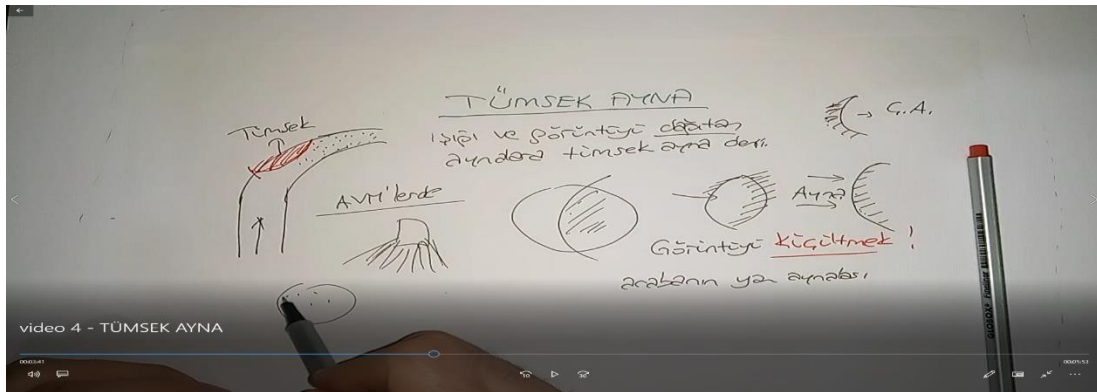 TÜMSEK AYNA
Işığı ve görüntüyü dağıtan
aynalara tümsek ayna denir.
→ Ç.A.
Tümsek
AVM'lerde
Ayna
Görüntüyü küçültmek !
arabanın yan aynaları
video 4 - TÜMSEK AYNA
00:03:41
00:05:53
10
30